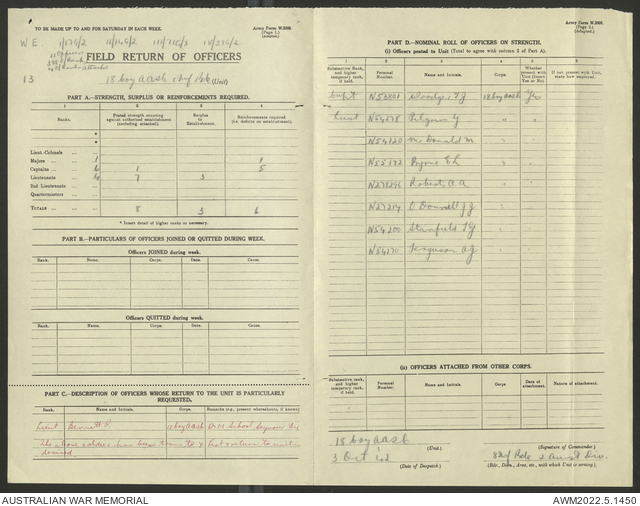 TO BE MADE UP TO AND FOR SATURDAY IN EACH WEEK.
Army Form W.3008.
(Page 1.)
(Adapted.)
WE
FIELD RETURN OF OFFICERS
13
18 Coy AASC (Unit)
PART A.—STRENGTH, SURPLUS OR REINFORCEMENTS REQUIRED.
1 2 3 4
Ranks. Posted strength counting against authorized establishment (excluding attached). Surplus to Establishment. Reinforcements required (i.e. deficits on establishment).
*
*
Lieut.-Colonels
Majors 1 1
Captains 6 1 5
Lieutenants 4 7 3
2nd Lieutenants
Quartermasters
TOTALS 8 3 6
* Insert detail of higher ranks as necessary.
PART B.—PARTICULARS OF OFFICERS JOINED OR QUITTED DURING WEEK.
Officers JOINED during week.
Rank. Name. Corps. Date. Cause.
Officers QUITTED during week.
Rank. Name. Corps. Date. Cause.
PART C.—DESCRIPTION OF OFFICERS WHOSE RETURN TO THE UNIT IS PARTICULARLY REQUESTED.
Rank. Name and Initials. Corps. Remarks (e.g., present whereabouts, if known)
Lieut Bennett 18 Coy AASC School
The above officer has been & his return to unit is desired
Army Form W.3008.
(Page 2.)
(Adapted.)
PART D.—NOMINAL ROLL OF OFFICERS ON STRENGTH.
(i) Officers posted to Unit (Total to agree with column 2 of Part A).
1 2 3 4 5 6
Substantive Rank, and higher temporary rank, if held. Personal Number. Name and Initials. Corps. Whether present with Unit (Insert Yes or No). If not present with Unit, state how employed.
Capt 18 Coy AASC Yes
Lieut N54278 Pilgrim G " "
N54120 McDonald M " "
N55172 E L " "
N278296 Roberts A A " "
N27214 O'Donnell J J " "
N54200 Stanfield T G " "
N54170 Ferguson A J " "
(ii) OFFICERS ATTACHED FROM OTHER CORPS.
Substantive rank, and higher temporary rank, if held. Personal Number. Name and Initials. Corps. Date of attachment. Nature of attachment.
18 Coy AASC
(Unit.) (Signature of Commander)
3 Oct 42 2 Aust Div.
(Date of Despatch.) (Bde., Divn., Area, etc., with which Unit is serving).
AUSTRALIAN WAR MEMORIAL AWM2022.5.1450